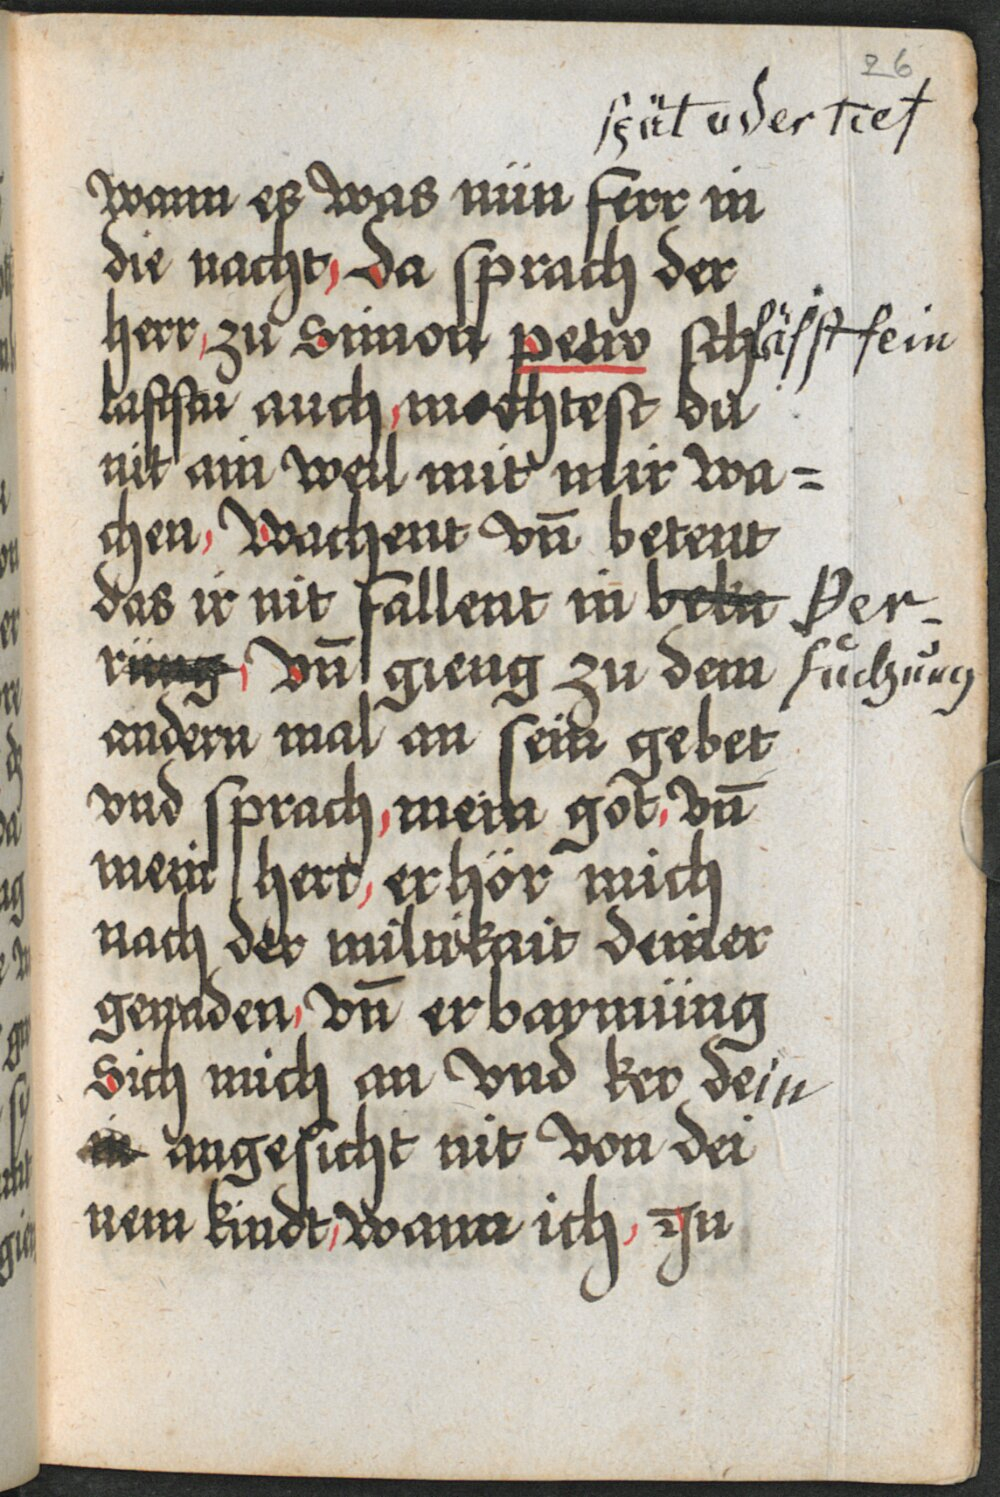 26
spät oder tief
wann es was nün ferr in
die nacht, da sprach der
herr, zu Simon petro schläffst fein
laffstu auch, mochtest du
nit ain weil mit mir wa=
chen, Wachent vn̄ betent
das ir nit fallent in beko Ver-
rüng, vn̄ gieng zu dem suchung
andern mal an sein gebet
vnd sprach, mein got, vn̄
mein herr, erhör mich
nach der miltikait deiner
genaden, vn̄ erbarmüng
Sich mich an vnd ker dein
in angesicht nit von dei
nem kindt, wann ich, Jn